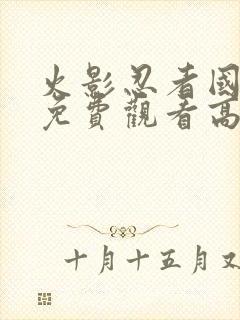 火影忍者國
免費觀看高
十月十五月又